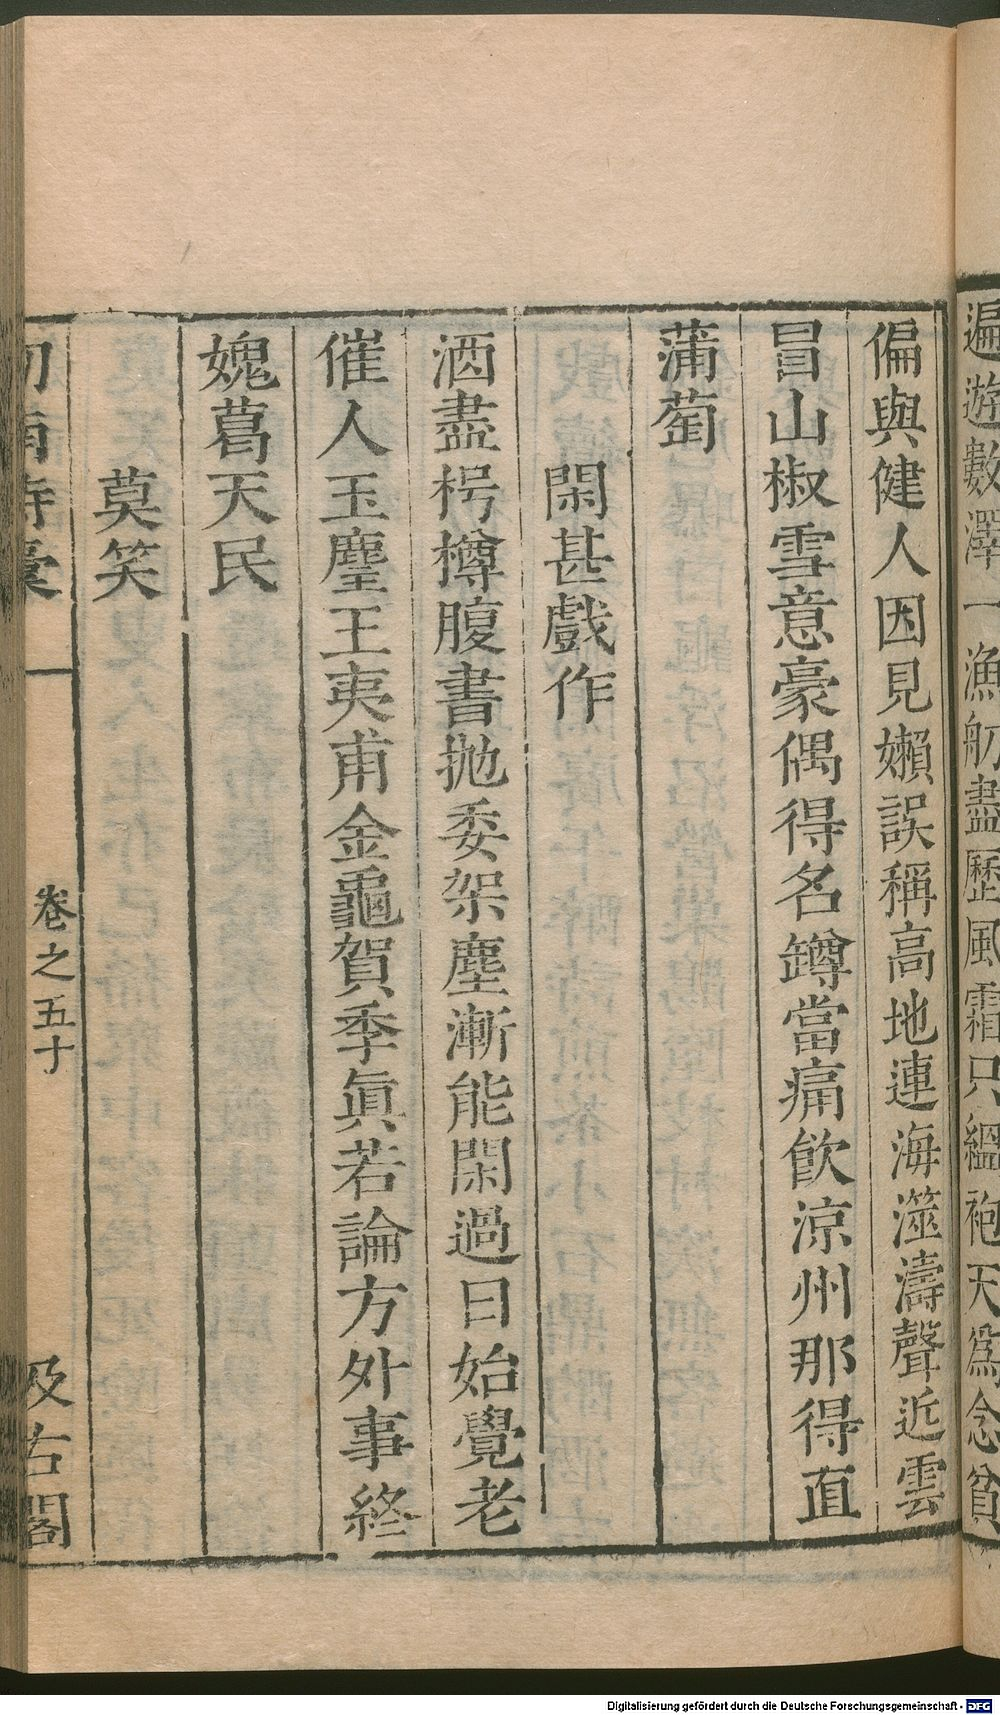 遍遊數澤一漁舠盡歷風霜只縕袍天爲念貧
偏與健人因見嬾誤稱高地連海澨濤聲近雲
冒山椒雪意豪偶得名罇當痛飲涼州那得直
蒲萄
閑甚戲作
酒盡枵樽腹書拋委架塵漸能閑過日始覺老
催人玉麈王夷甫金龜賀季眞若論方外事終
媿葛天民
莫笑
劍南詩稾
卷之五十
汲古閣
Digitalisierung gefördert durch die Deutsche Forschungsgemeinschaft - DFG